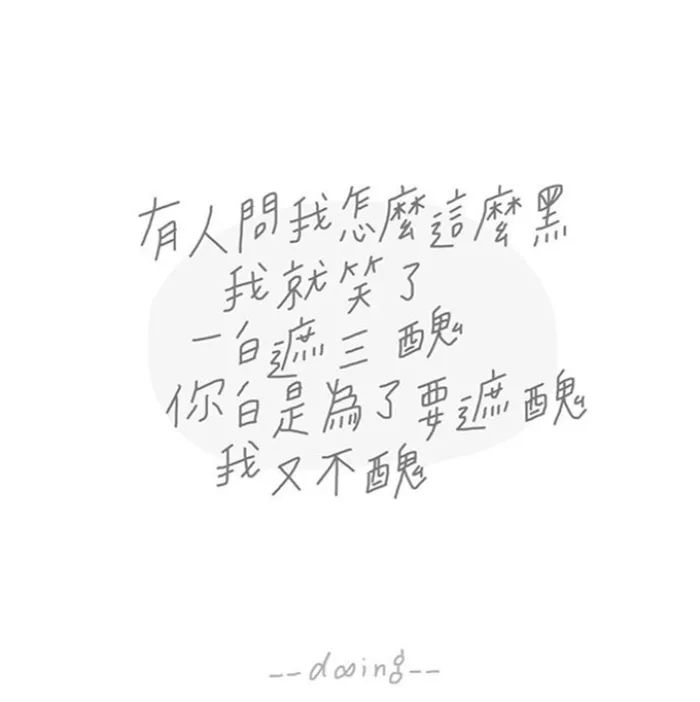 有人問我怎麼這麼黑
我就笑了
一白遮三醜
你白是為了要遮醜
我又不醜
--dosing--